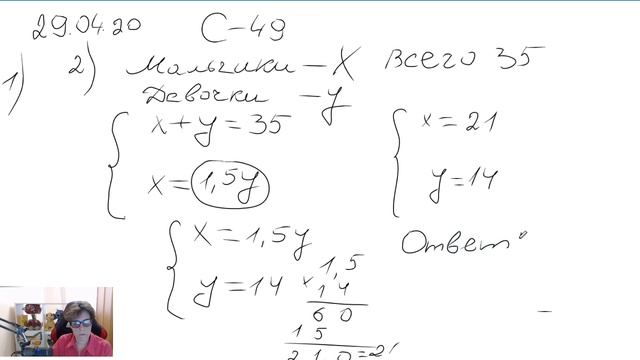 29.04.20 С-49
1) 2) Мальчики – x всего 35
Девочки – y
x+y=35
x=1,5y
x=21
y=14
x=1,5y
y=14
Ответ:
× 1,5
1 4
6 0
1 5
2 1,0=21